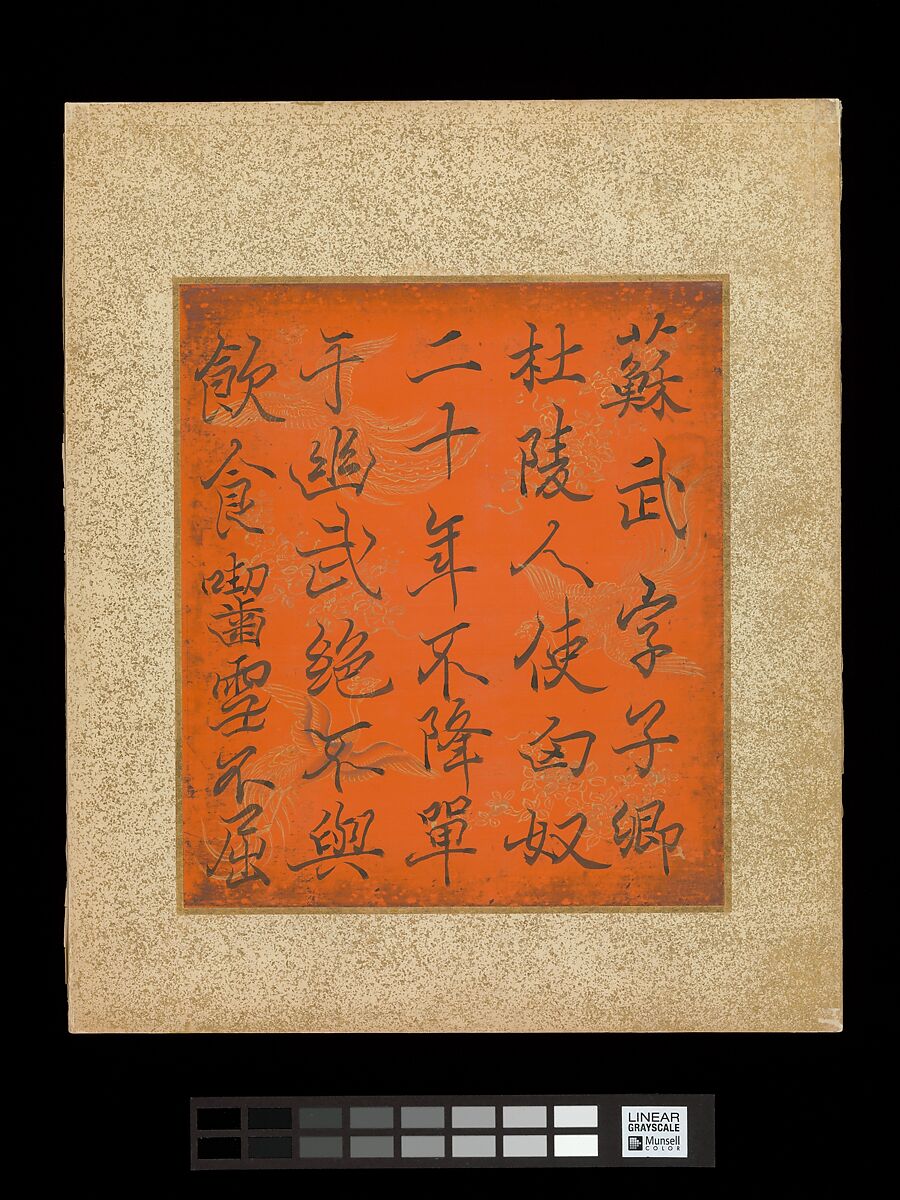 蘇武字子卿
杜陵人使匈奴
二十年不降單
于幽武絕不與
飲食嚙雪不屈
LINEAR
GRAYSCALE
Munsell
COLOR